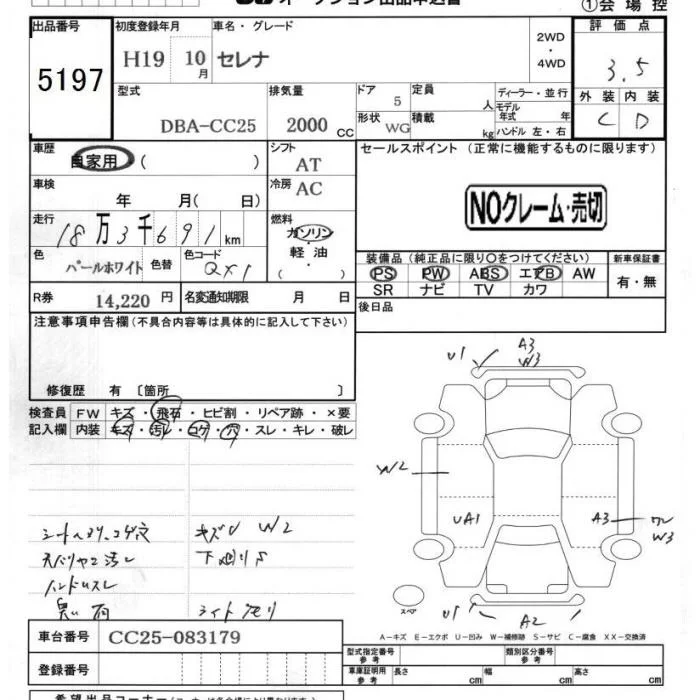 オークション出品申込書
①会場控
出品番号 初度登録年月 車名・グレード 評価点
5197 H19 10月 セレナ 2WD・4WD 3.5
型式 排気量 ドア 定員 ディーラー・並行 外装 内装
DBA-CC25 2000CC 5 人 モデル年式 年 C D
形状 WG 積載 kg ハンドル 左・右
車歴 自家用 ( ) シフト AT セールスポイント (正常に機能するものに限ります)
車検 年 月( 日) 冷房 AC
NOクレーム・売切
走行 18万3千691km 燃料 ガソリン・軽油・( )
色 パールホワイト 色替 色コード QX1
装備品 (純正品に限り○をつけてください) 新車保証書
PS PW ABS エアB AW 有・無
SR ナビ TV カワ
R券 14,220円 名変通知期限 月 日 後日品
注意事項申告欄 (不具合内容等は具体的に記入して下さい)
修復歴 有 〔箇所 〕
検査員記入欄 FW キズ・飛石・ヒビ割・リペア跡・×要
内装 キズ・汚レ・コゲ・穴・スレ・キレ・破レ
U1 A3 W3
W2
UA1 A3 ワレ W3
キズU W2
ハンドルスレ
ライトクモリ
スペア
U1 A2
A-キズ E-エクボ U-凹み W-補修跡 S-サビ C-腐食 XX-交換済
車台番号 CC25-083179
型式指定番号 参考 類別区分番号 参考
登録番号 車庫証明用 参考 長さ cm 幅 cm 高さ cm
希望出品コーナー